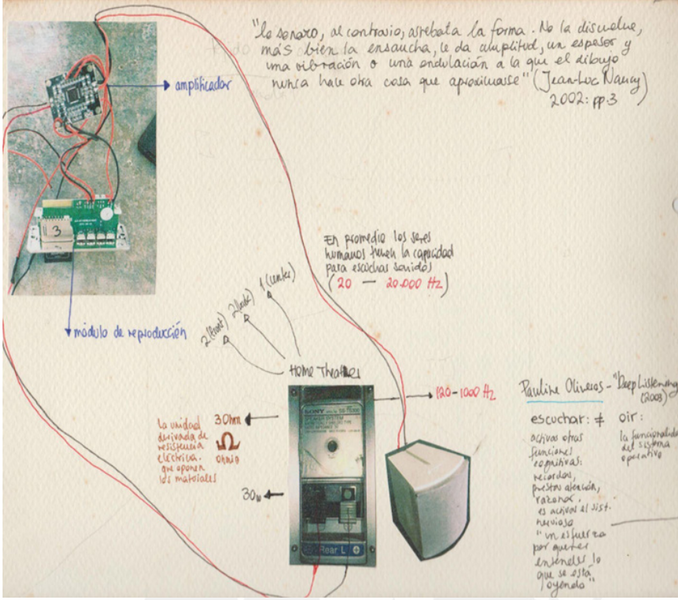 "lo sonoro, al contrario, arrebata la forma. No la disuelve,
más bien la ensancha, le da amplitud, un espesor y
una vibración o una ondulación a la que el dibujo
nunca hace otra cosa que aproximarse" (Jean-Luc Nancy,
2002: pp.3)
amplificador
3
módulo de reproducción
En promedio los seres
humanos tienen la capacidad
para escuchar sonidos
(20 — 20.000 Hz)
2 (front)
1 (center)
Home Theather
120-1000 Hz
SONY
SPEAKER SYSTEM
3 Ohm
La unidad
derivada de
resistencia
eléctrica.
que oponen
los materiales
Ω
Ohmio
30w
Rear L
Pauline Oliveros - "Deep Listening"
(2003)
escuchar: ≠ oir:
activar otras
funciones
cognitivas:
recordar,
prestar atención,
razonar.
es activar el sist.
nervioso
"un esfuerzo
por querer
entender lo
que se está
oyendo"
la funcionalidad
del sistema
operativo